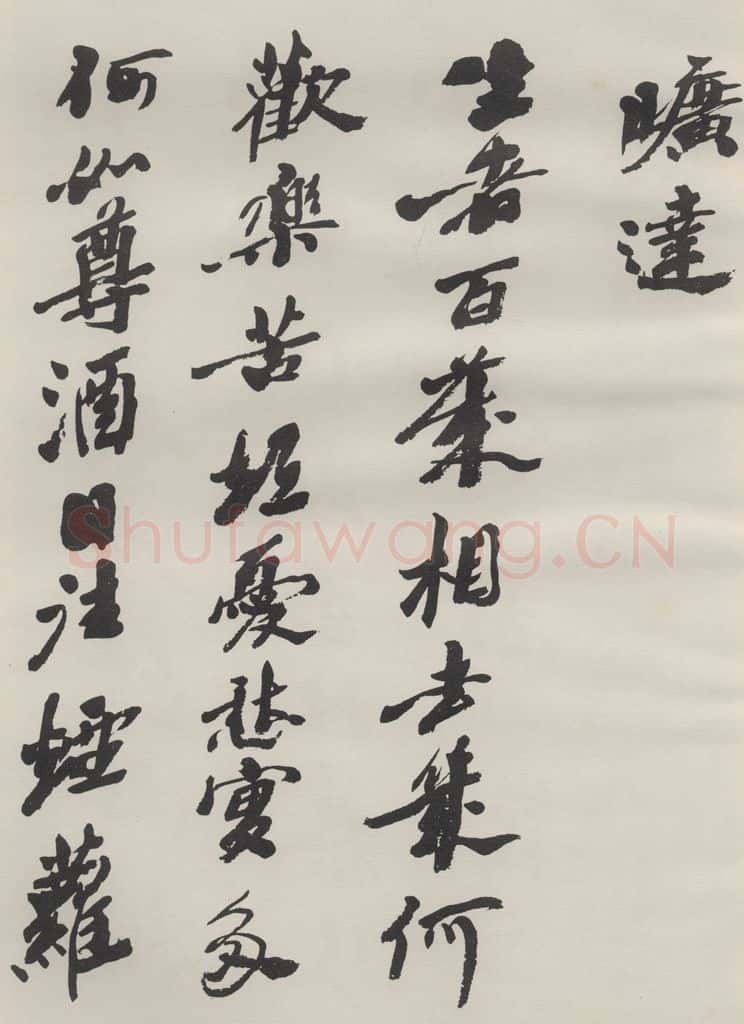 曠達
生者百歲相去幾何
歡樂苦短憂愁實多
何如尊酒日往煙蘿
Shufawang.CN